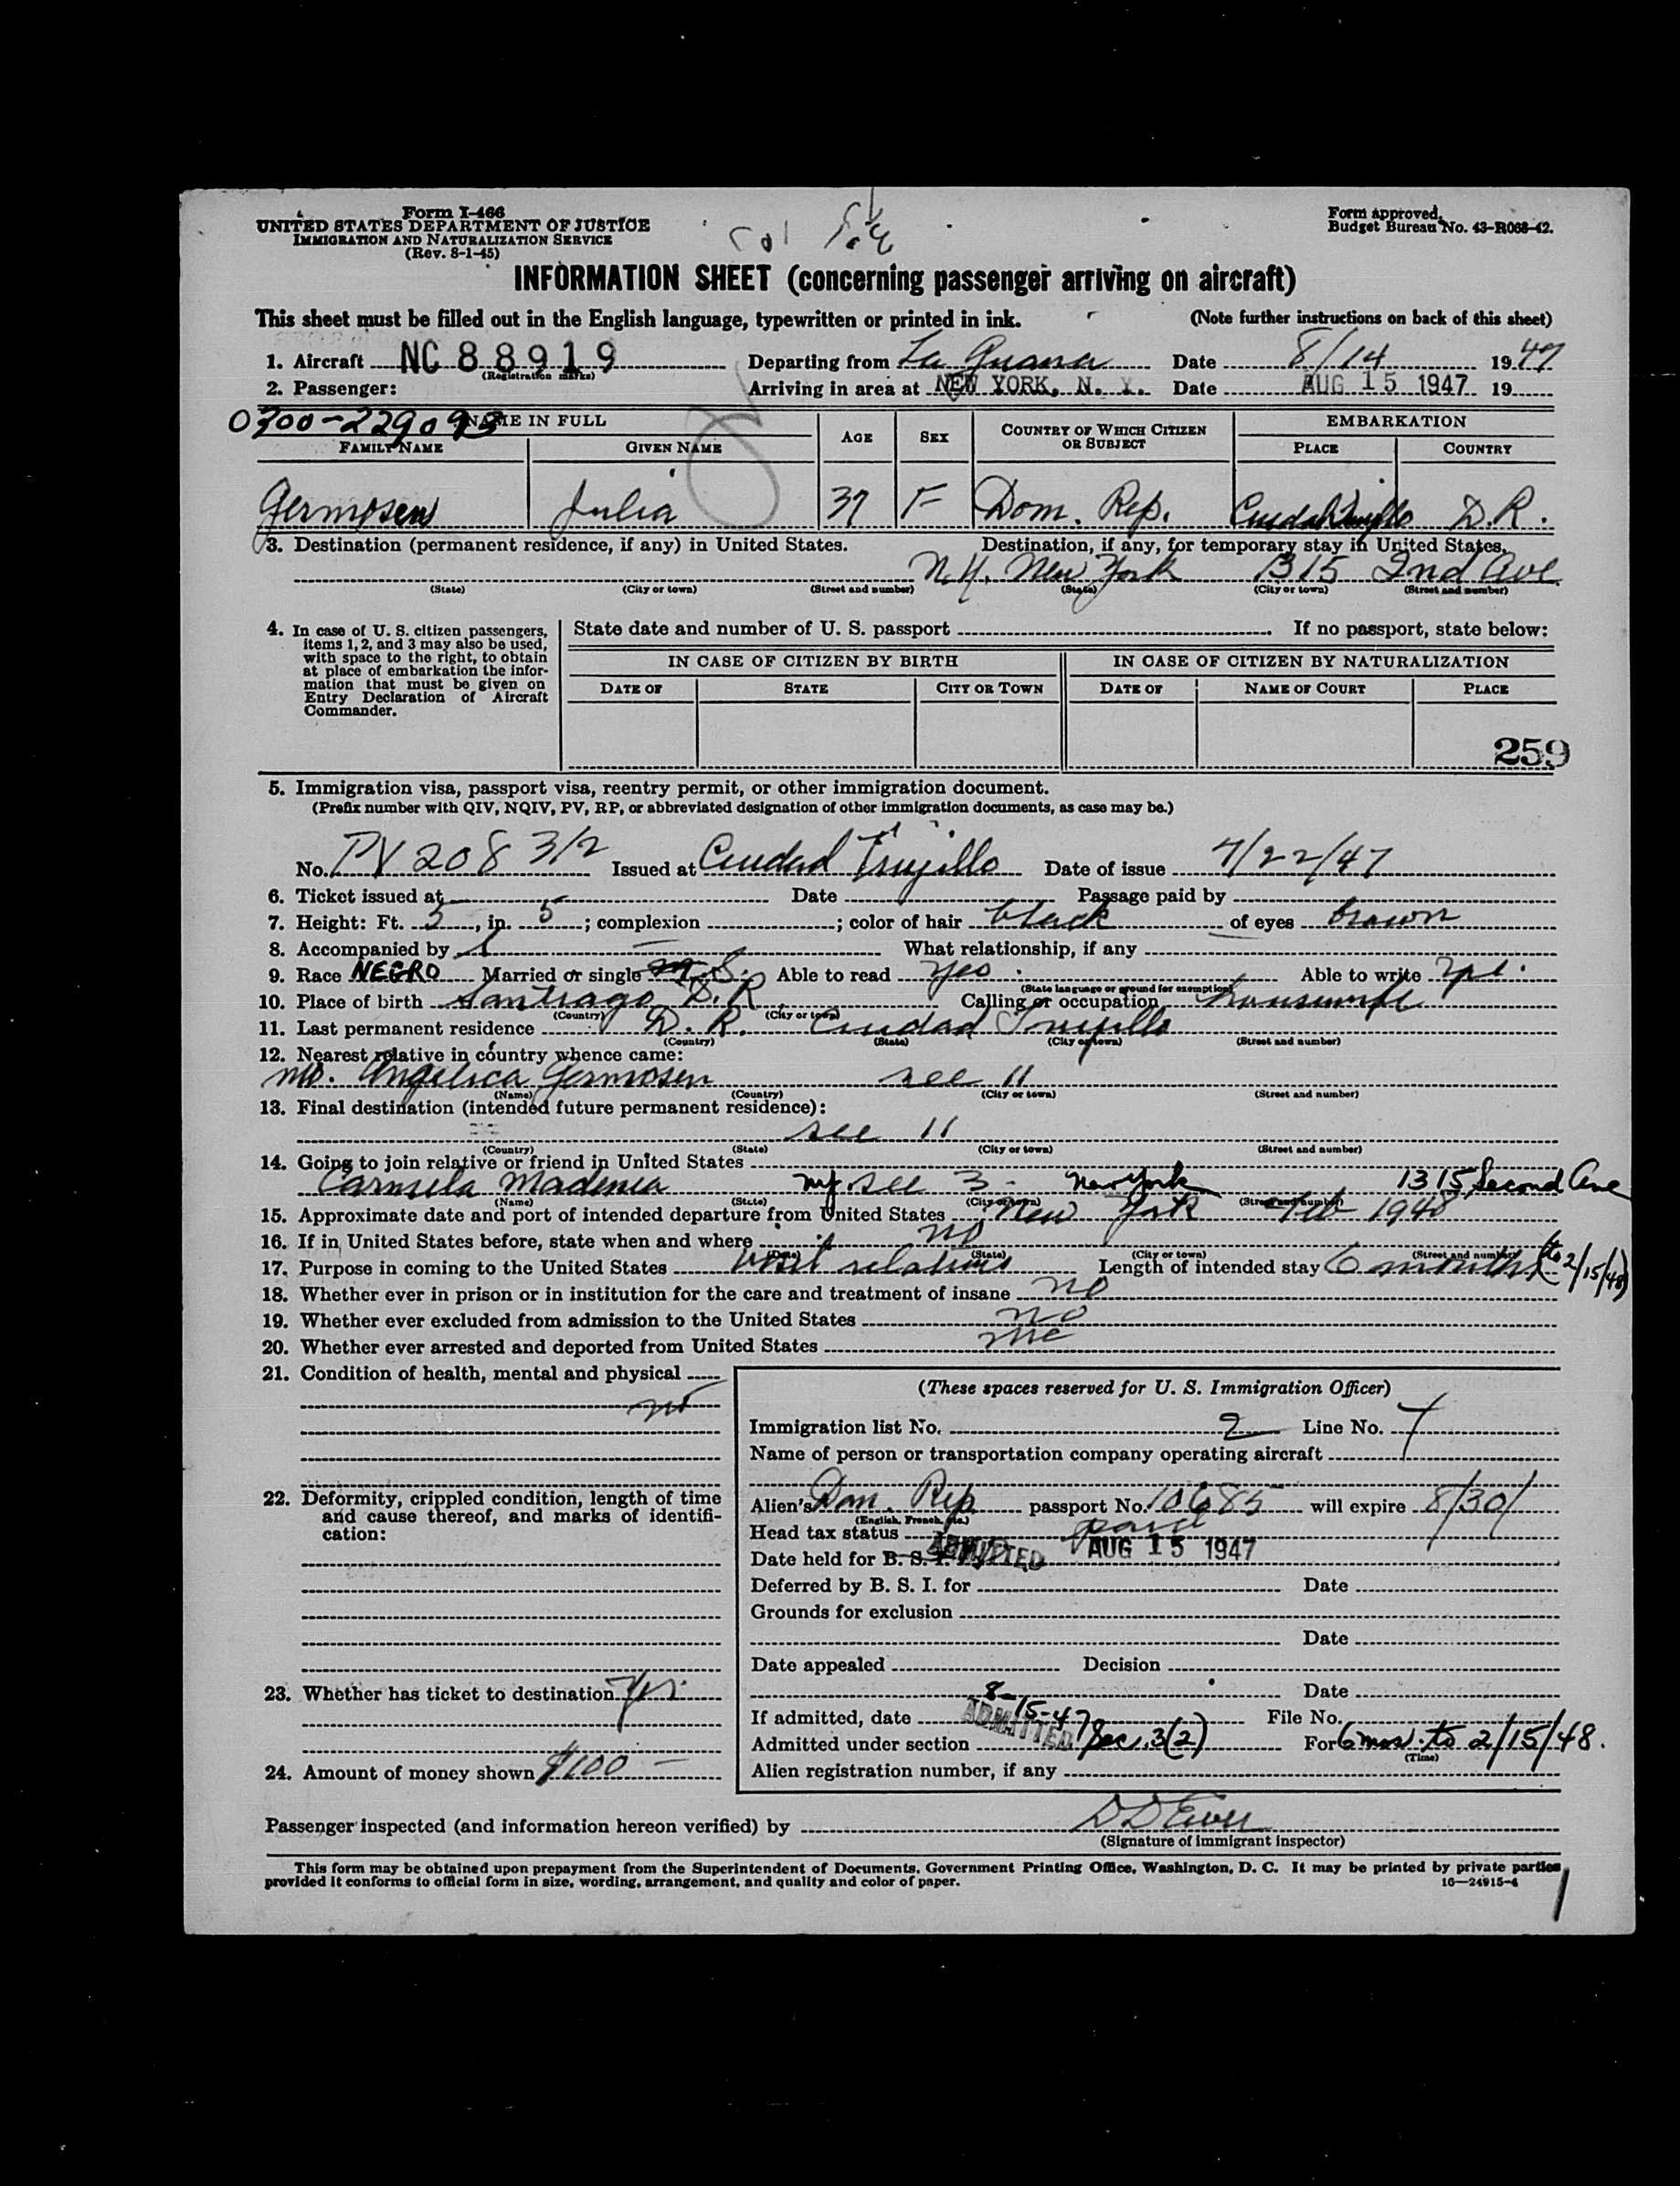 Form I-466
UNITED STATES DEPARTMENT OF JUSTICE
IMMIGRATION AND NATURALIZATION SERVICE
(Rev. 8-1-45)
Form approved.
Budget Bureau No. 43-R068-42.
INFORMATION SHEET (concerning passenger arriving on aircraft)
This sheet must be filled out in the English language, typewritten or printed in ink. (Note further instructions on back of this sheet)
1. Aircraft NC 88919 Departing from La Guaira Date 8/14 1947
(Registration marks)
2. Passenger: Arriving in area at NEW YORK, N. Y. Date AUG 15 1947 19
0300-229093
NAME IN FULL AGE SEX COUNTRY OF WHICH CITIZEN OR SUBJECT EMBARKATION
FAMILY NAME GIVEN NAME PLACE COUNTRY
Germosen Julia 37 F Dom. Rep. Ciudad Trujillo D.R.
3. Destination (permanent residence, if any) in United States. Destination, if any, for temporary stay in United States.
N.Y. New York 1315 2nd Ave
(State) (City or town) (Street and number) (State) (City or town) (Street and number)
4. In case of U. S. citizen passengers, items 1, 2, and 3 may also be used, with space to the right, to obtain at place of embarkation the information that must be given on Entry Declaration of Aircraft Commander.
State date and number of U. S. passport If no passport, state below:
IN CASE OF CITIZEN BY BIRTH IN CASE OF CITIZEN BY NATURALIZATION
DATE OF STATE CITY OR TOWN DATE OF NAME OF COURT PLACE
259
5. Immigration visa, passport visa, reentry permit, or other immigration document.
(Prefix number with QIV, NQIV, PV, RP, or abbreviated designation of other immigration documents, as case may be.)
No. PV 208 3/2 Issued at Ciudad Trujillo Date of issue 7/22/47
6. Ticket issued at Date Passage paid by
7. Height: Ft. 5, in. 5; complexion ; color of hair black of eyes brown
8. Accompanied by What relationship, if any
9. Race NEGRO Married or single S. Able to read yes Able to write yes.
(State language or ground for exemption)
10. Place of birth Santiago D.R. Calling or occupation housewife
(Country) (City or town)
11. Last permanent residence D. R. Ciudad Trujillo
(Country) (State) (City or town) (Street and number)
12. Nearest relative in country whence came:
mo. Angelica Germosen see 11
(Name) (Country) (City or town) (Street and number)
13. Final destination (intended future permanent residence):
see 11
(Country) (State) (City or town) (Street and number)
14. Going to join relative or friend in United States
Carmela Madera NY see 3 - New York 1315 Second Ave
(Name) (State) (City or town) (Street and number)
15. Approximate date and port of intended departure from United States New York Feb 1948
16. If in United States before, state when and where no
(Date) (State) (City or town) (Street and number)
17. Purpose in coming to the United States visit relations Length of intended stay 6 months (to 2/15/48)
18. Whether ever in prison or in institution for the care and treatment of insane no
19. Whether ever excluded from admission to the United States no
20. Whether ever arrested and deported from United States no
21. Condition of health, mental and physical
22. Deformity, crippled condition, length of time and cause thereof, and marks of identification:
23. Whether has ticket to destination yes
24. Amount of money shown $100 -
(These spaces reserved for U. S. Immigration Officer)
Immigration list No. 2 Line No. 7
Name of person or transportation company operating aircraft
Alien's Dom. Rep passport No. 10685 will expire 8/30/
(English, French, etc.)
Head tax status paid
Date held for B. S. I. ADMITTED AUG 15 1947
Deferred by B. S. I. for Date
Grounds for exclusion
Date
Date appealed Decision
Date
If admitted, date 8-15-47 File No.
ADMITTED
Admitted under section Sec. 3(2) For 6 mos. to 2/15/48.
(Time)
Alien registration number, if any
Passenger inspected (and information hereon verified) by
(Signature of immigrant inspector)
This form may be obtained upon prepayment from the Superintendent of Documents, Government Printing Office, Washington, D. C. It may be printed by private parties
provided it conforms to official form in size, wording, arrangement, and quality and color of paper. 16—24915-4